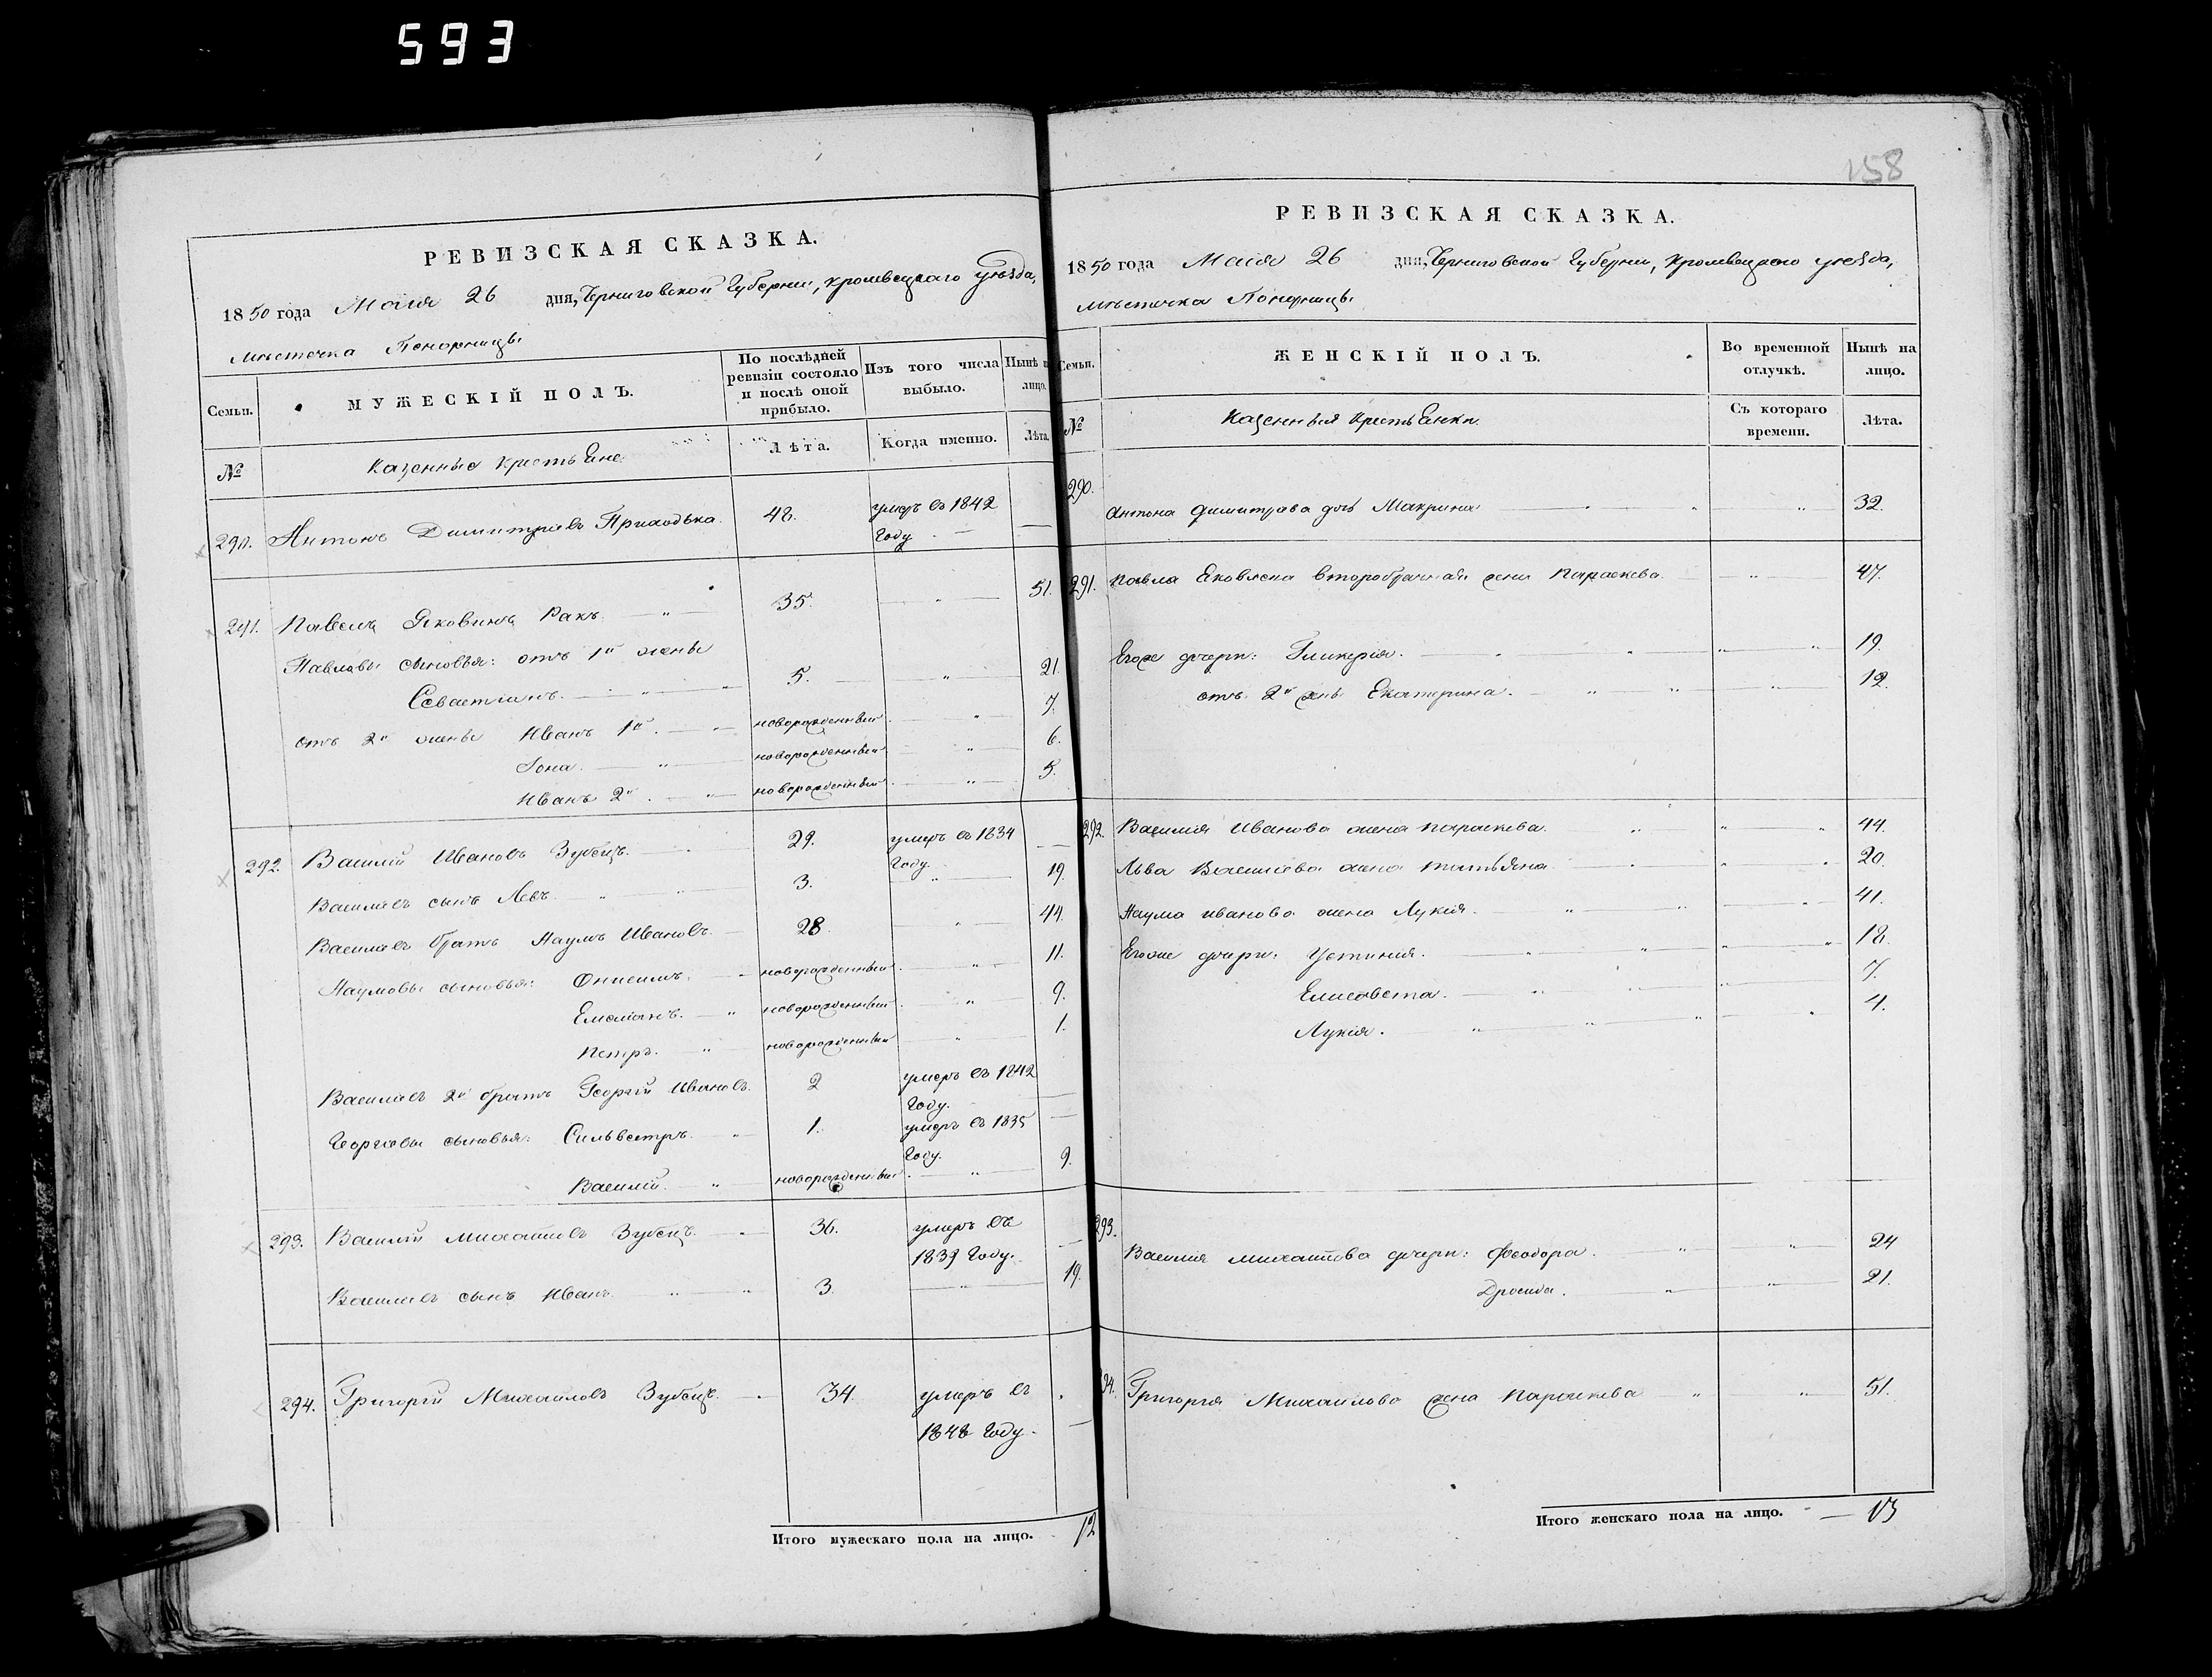 593
158
РЕВИЗСКАЯ СКАЗКА.
1850 года Маія 26 дня, Черниговской Губерніи, Кролевецкаго уѣзда,
мѣстечка Понорницы
Семьи. МУЖЕСКІЙ ПОЛЪ. По послѣдней ревизіи состояло и послѣ оной прибыло. Изъ того числа выбыло. Нынѣ на лицо.
№ Казенные крестьяне Лѣта. Когда именно. Лѣта.
290. Антонъ Димитріевъ Приходька. 48. умеръ въ 1842 Году —
291. Павелъ Яковлевъ Ракъ. 35. 51.
Павловы сыновья: отъ 1й жены
Севастіанъ. 5. 21.
отъ 2й жены Иванъ 1й. новорожденный 7.
Іона. новорожденный 6.
Иванъ 2й. новорожденный 5.
292. Василій Ивановъ Зубецъ. 29. умеръ въ 1834 Году. —
Васильевъ сынъ Левъ. 3. 19.
Васильевъ братъ Наумъ Ивановъ. 28. 44.
Наумовы сыновья: Онисимъ. новорожденный 11.
Емеліанъ. новорожденный 9.
Петръ. новорожденный 1.
Васильевъ 2й братъ Георгій Ивановъ. 2 умеръ въ 1842 Году. —
Георгіевы сыновья: Сильвестръ. 1. умеръ въ 1835 Году. —
Василій. новорожденный. 9.
293. Василій Михайловъ Зубецъ. 36. умеръ въ 1839 Году. —
Васильевъ сынъ Иванъ. 3. 19.
294. Григорій Михайловъ Зубецъ. 34 умеръ въ 1848 Году. —
Итого мужескаго пола на лицо. 12
РЕВИЗСКАЯ СКАЗКА.
1850 года Маія 26 дня, Черниговской Губерніи, Кролевецкаго уѣзда,
мѣстечка Понорницы
Семьи. ЖЕНСКІЙ ПОЛЪ. Во временной отлучкѣ. Нынѣ на лицо.
№ Казенныя крестьянки. Съ котораго времени. Лѣта.
290. Антона Димитрова дочь Макрина 32.
291. Павла Яковлева второбрачная жена Параскева. 47.
Егоже дочери: Гликерія. 19.
отъ 2й жены Екатерина. 12.
292. Василія Иванова жена Параскева. 44.
Льва Васильева жена Татьяна. 20.
Наума Иванова жена Лукія. 41.
Егоже дочери: Устинія. 18.
Елисавета. 7.
Лукія. 4.
293. Василія Михайлова дочери: Феодора. 24
Дросида. 21.
94. Григорія Михайлова жена Параскева 51.
Итого женскаго пола на лицо. — 13